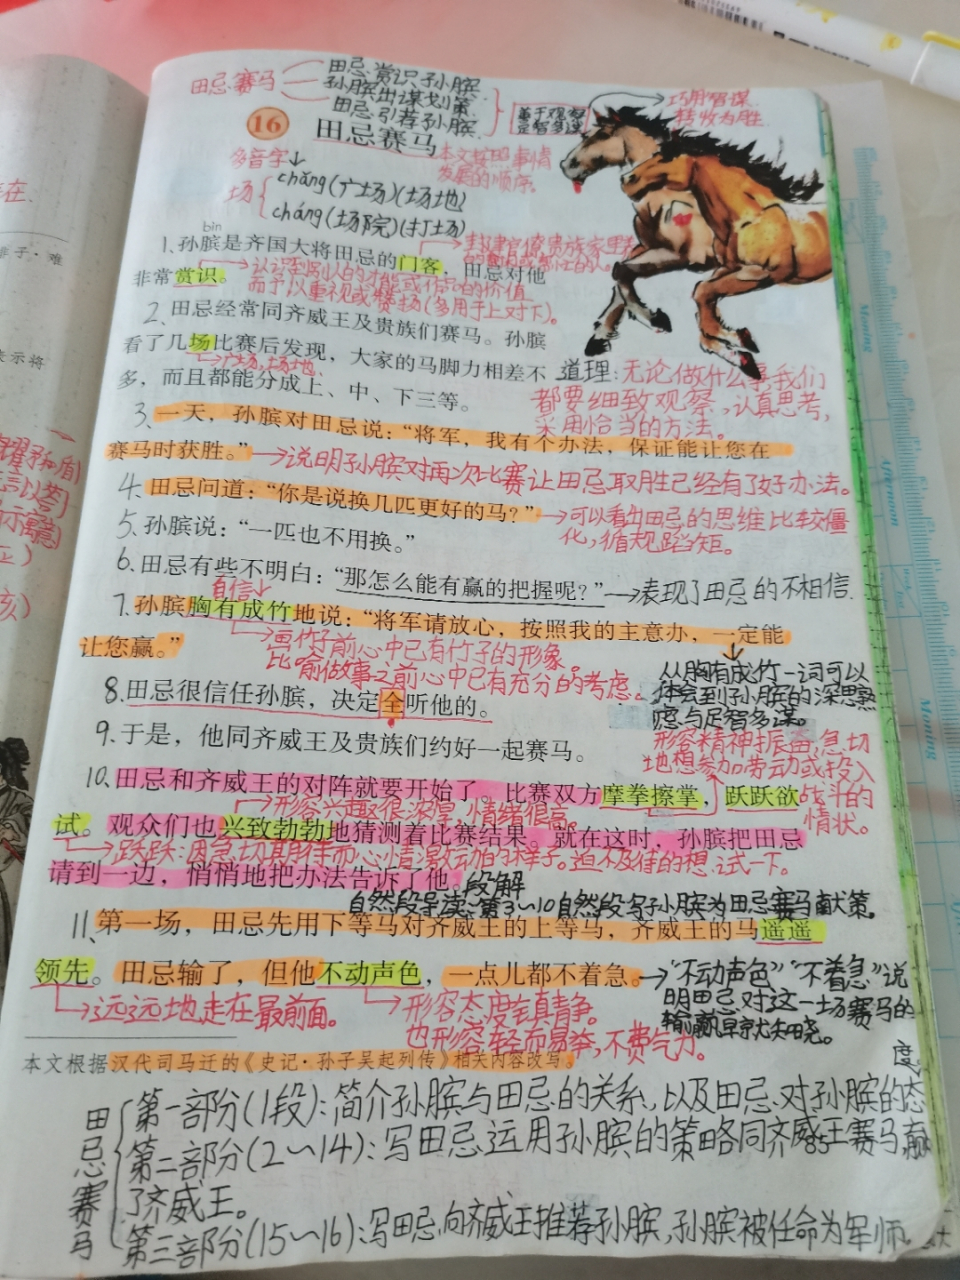 田忌赛马
田忌赏识孙膑
孙膑出谋划策
田忌引荐孙膑
善于观察
足智多谋
巧用智谋
转败为胜
16 田忌赛马
本文按照事情
发展的顺序。
多音字
场
chǎng(广场)(场地)
cháng(场院)(打场)
bìn
1、孙膑是齐国大将田忌的门客，田忌对他
封建官僚贵族家里养
非常赏识。
认识到别人的才能或作品的价值
而予以重视或赞扬(多用于上对下)。
2、田忌经常同齐威王及贵族们赛马。孙膑
看了几场比赛后发现，大家的马脚力相差不
广场，场地。
多，而且都能分成上、中、下三等。
道理：无论做什么事我们
都要细致观察，认真思考，
采用恰当的方法。
3、一天，孙膑对田忌说：“将军，我有个办法，保证能让您在
赛马时获胜。”
说明孙膑对再次比赛让田忌取胜已经有了好办法。
4、田忌问道：“你是说换几匹更好的马？”
可以看出田忌的思维比较僵
化，循规蹈矩。
5、孙膑说：“一匹也不用换。”
6、田忌有些不明白：“那怎么能有赢的把握呢？”
表现了田忌的不相信.
自信
7、孙膑胸有成竹地说：“将军请放心，按照我的主意办，一定能
让您赢。”
画竹子前心中已有竹子的形象。
比喻做事之前心中已有充分的考虑。
从胸有成竹一词可以
体会到孙膑的深思熟
虑与足智多谋。
8、田忌很信任孙膑，决定全听他的。
9、于是，他同齐威王及贵族们约好一起赛马。
形容精神振奋，急切
地想参加劳动或投入
战斗的
情状。
10、田忌和齐威王的对阵就要开始了。比赛双方摩拳擦掌，跃跃欲
形容兴趣很浓厚，情绪很高。
试。观众们也兴致勃勃地猜测着比赛结果。就在这时，孙膑把田忌
跃跃：因急切期待而心情激动的样子。迫不及待的想试一下。
请到一边，悄悄地把办法告诉了他。
段解
自然段导读：第3～10自然段写孙膑为田忌赛马献策。
11、第一场，田忌先用下等马对齐威王的上等马，齐威王的马遥遥
领先。田忌输了，但他不动声色，一点儿都不着急。
“不动声色”“不着急”说
明田忌对这一场赛马的
输赢早就知晓。
远远地走在最前面。
形容态度镇静。
也形容轻而易举，不费气力。
本文根据汉代司马迁的《史记·孙子吴起列传》相关内容改写。
田忌赛马
第一部分(1段)：简介孙膑与田忌的关系，以及田忌对孙膑的态
度。
第二部分(2～14)：写田忌运用孙膑的策略同齐威王赛马，赢
了齐威王。
85
第三部分(15～16)：写田忌向齐威王推荐孙膑，孙膑被任命为军师。